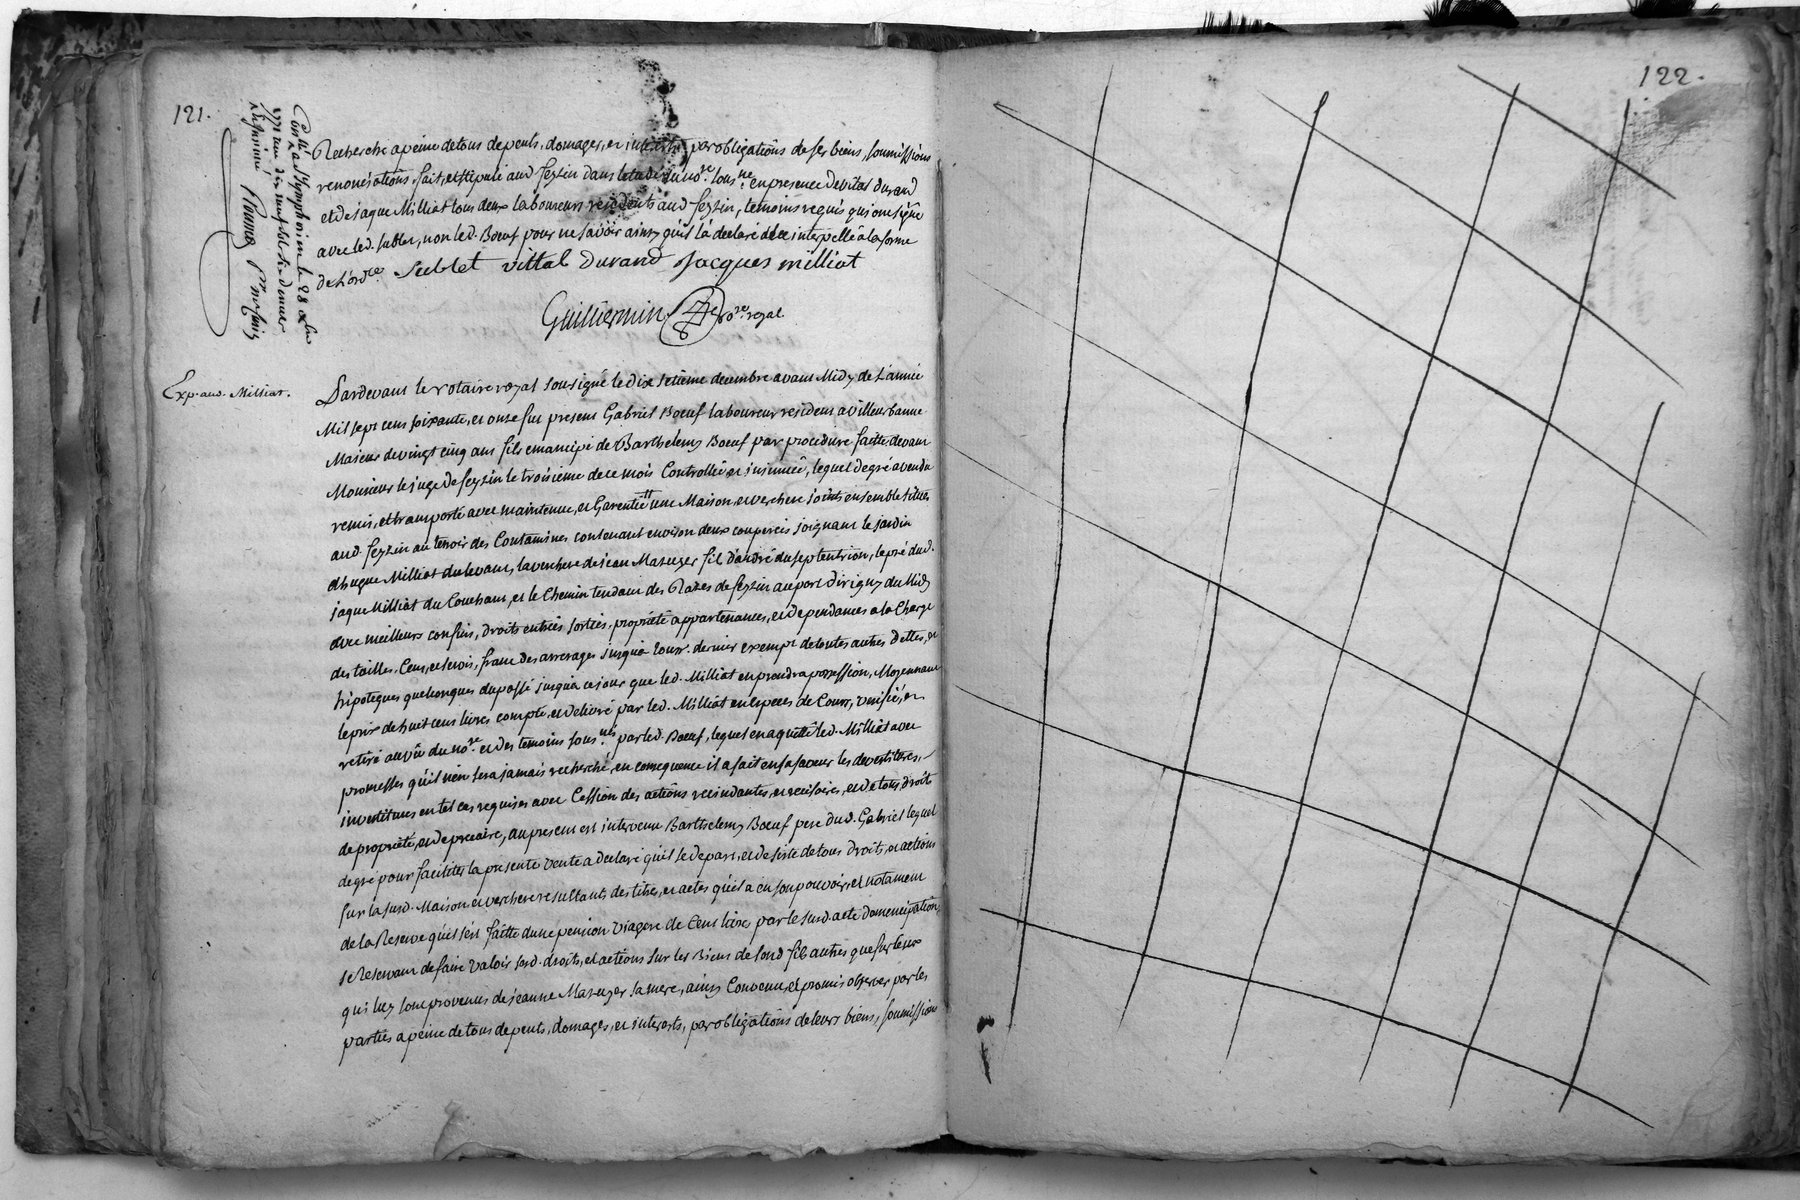 121.
122.
Recherché apeine detous depents, domages, et interests, par obligations de ses biens, soumissions
renonciations, fait, et stipulé aud. feyzin dans letude du nore. sousne. en presence de vital durand
et de jaque Milliat tous deux laboureurs residents aud feyzin, temoins requis qui ont signé
avec led. sublet, non led. Boeuf pour ne savoir ainsy qu'il la declaré de ce interpellé a la forme
de l'ordce. Sublet vittal Durand Jacques milliat
Guilliermin nore. royal
Collé a St Symphorien le 28 xbre
1771
Exp. aud. Milliat.
Pardevant le Notaire royal sousigné le dix setieme decembre avant Midy de L'année
Mil sept cent soixante, et onze fut present Gabriel Boeuf laboureur resident a villeurbanne
Majeur de vingt cinq ans fils emancipé de Barthelemy Boeuf par procedure faitte devant
Monsieur le juge de feyzin le troisieme de ce mois Controllée et insinuée, lequel de gré a vendu
remis, et transporté avec maintenue, et Garentie a une Maison, et verchere joints ensemble situés
aud. feyzin au terroir des Contamines contenant environ deux couperées joignant le jardin
d'hugue Milliat du levant, la verchere de jean Mazuyer fil d'andré du septentrion, le pré dud.
jaque Milliat du Couchant, et le Chemin tendant des Razes de feyzin au port d'irigny du Midy
avec meilleurs confins, droits entrées sorties, propriété appartenances, et dependances a la Charge
des tailles, Cens, et servis, franc des arrerages jusqu'a Cour. dernier exempt de toutes autres dettes, et
hipoteques quelconques du passé jusqu'a ce jour que led. Milliat en prendra possession, Moyennant
le prix de huit cens livres compté, et delivré par led. Milliat en especes de Cours, verifié, et
retiré au vû du nore. et des temoins sousnés par led. Boeuf, lequel en a quitté led. Milliat avec
promesses qu'il n'en sera jamais recherché, en consequence il a fait en sa faveur les devestitures,
investitures en tel cas requises avec Cession des actions rescindantes, et rescisoires, et de tous droits
de proprieté, et de precaire, au present est intervenu Barthelemy Boeuf pere dud. Gabriel lequel
de gré pour faciliter la presente vente a declaré qu'il se depart, et desiste de tous droits, et actions
sur la susd. Maison et verchere resultants des titres, et actes qu'il a en son pouvoir, et notament
de la Reserve qu'il s'est faitte d'une pension viagere de Cent livre par le susd. acte d'emencipation,
se Reservant de faire valoir sesd. droits, et actions sur les Biens de sond fils autres que sur ceux
qui luy sont provenus de jeanne Mazuyer sa mere, ainsy Convenu, et promis observer par les
parties apeine de tous depents, domages, et interests, par obligations de leurs biens, soumission